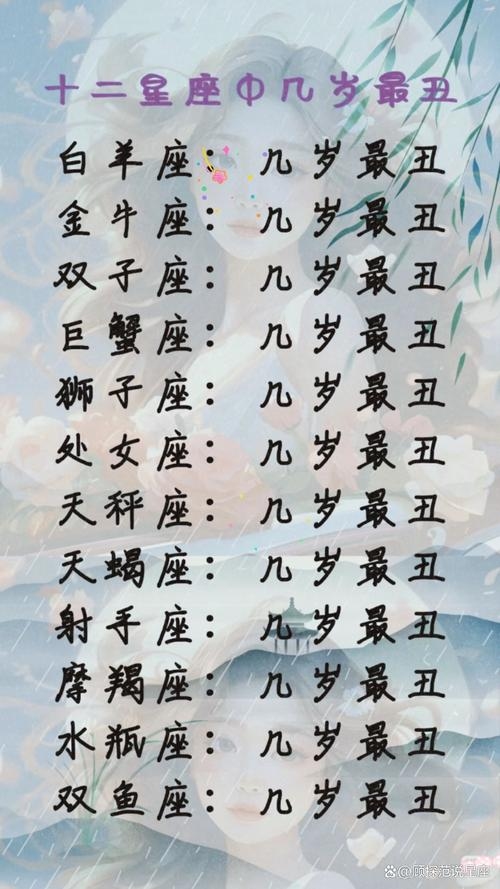 十二星座中几岁最丑
白羊座： 几岁最丑
金牛座： 几岁最丑
双子座： 几岁最丑
巨蟹座： 几岁最丑
狮子座： 几岁最丑
处女座： 几岁最丑
天秤座： 几岁最丑
天蝎座： 几岁最丑
射手座： 几岁最丑
摩羯座： 几岁最丑
水瓶座： 几岁最丑
双鱼座： 几岁最丑
@顾探范说星座